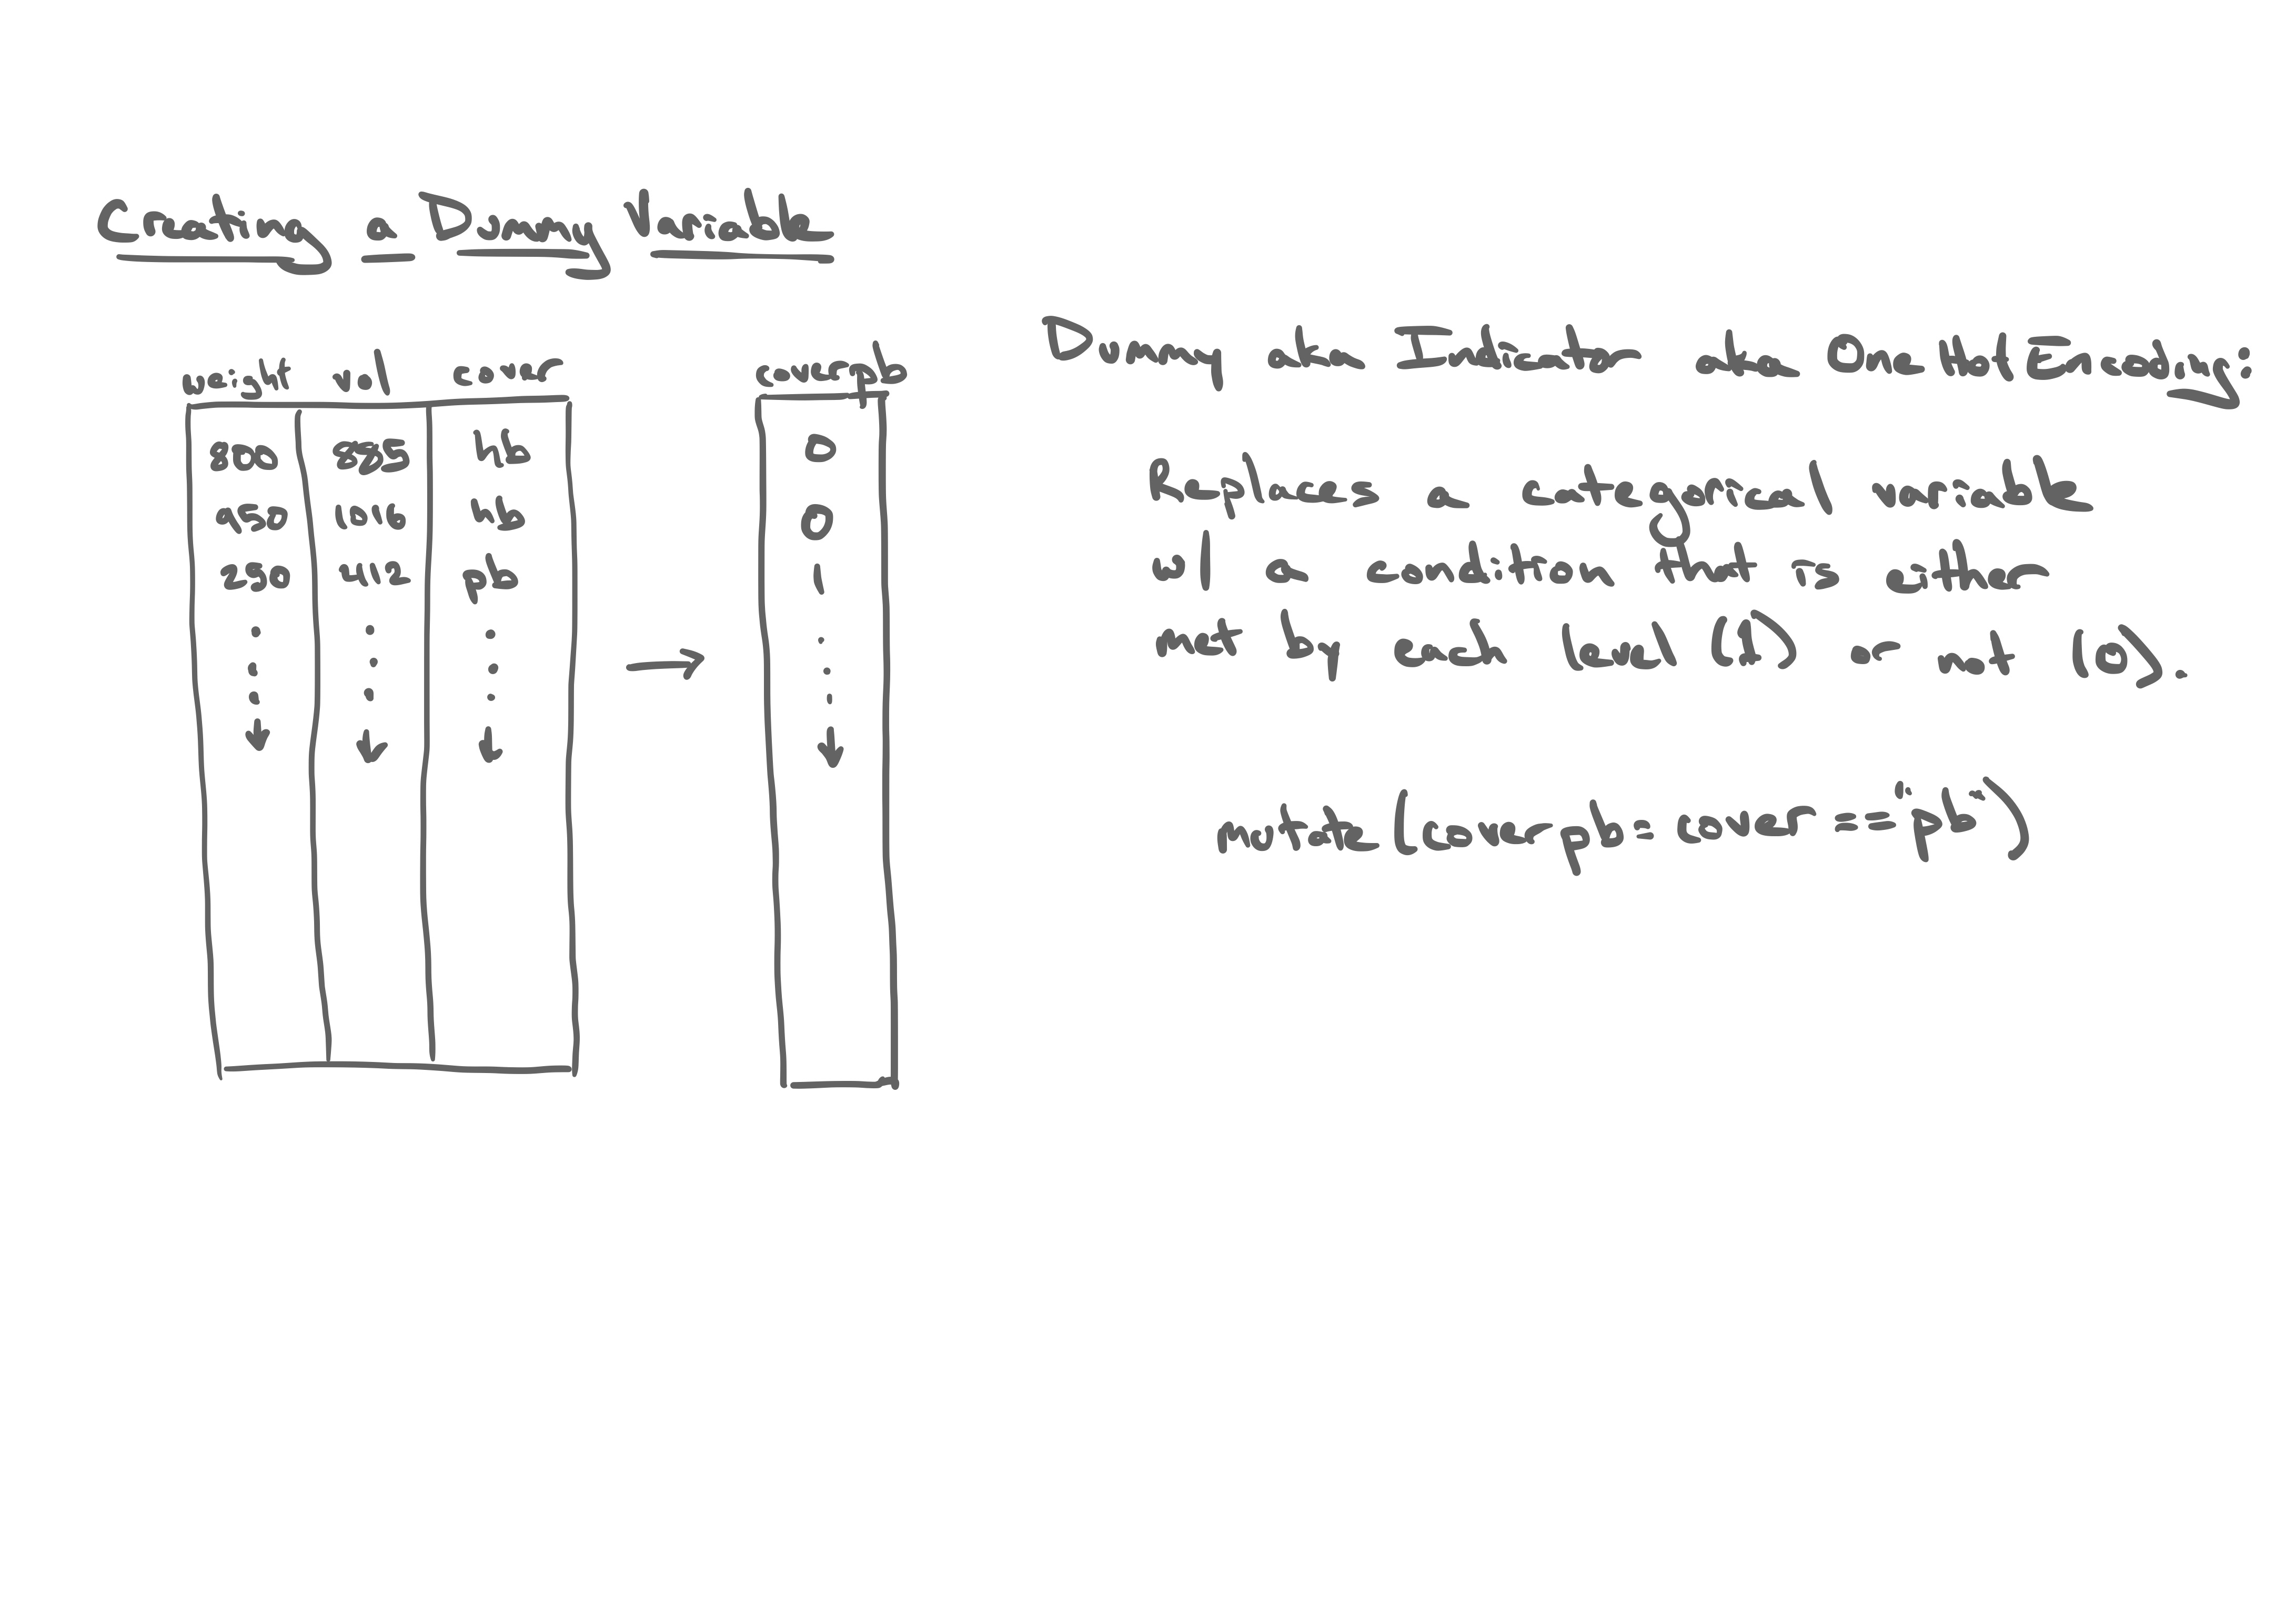 Creating a Dummy Variable
weight vol cover
800 885 hb
950 1016 hb
250 412 pb
coverpb
0
0
1
Dummy aka Indicator aka One Hot Encoding:
Replaces a categorical variable
w/ a condition that is either
met by each level (1) or not (0).
mutate(coverpb = cover == "pb")